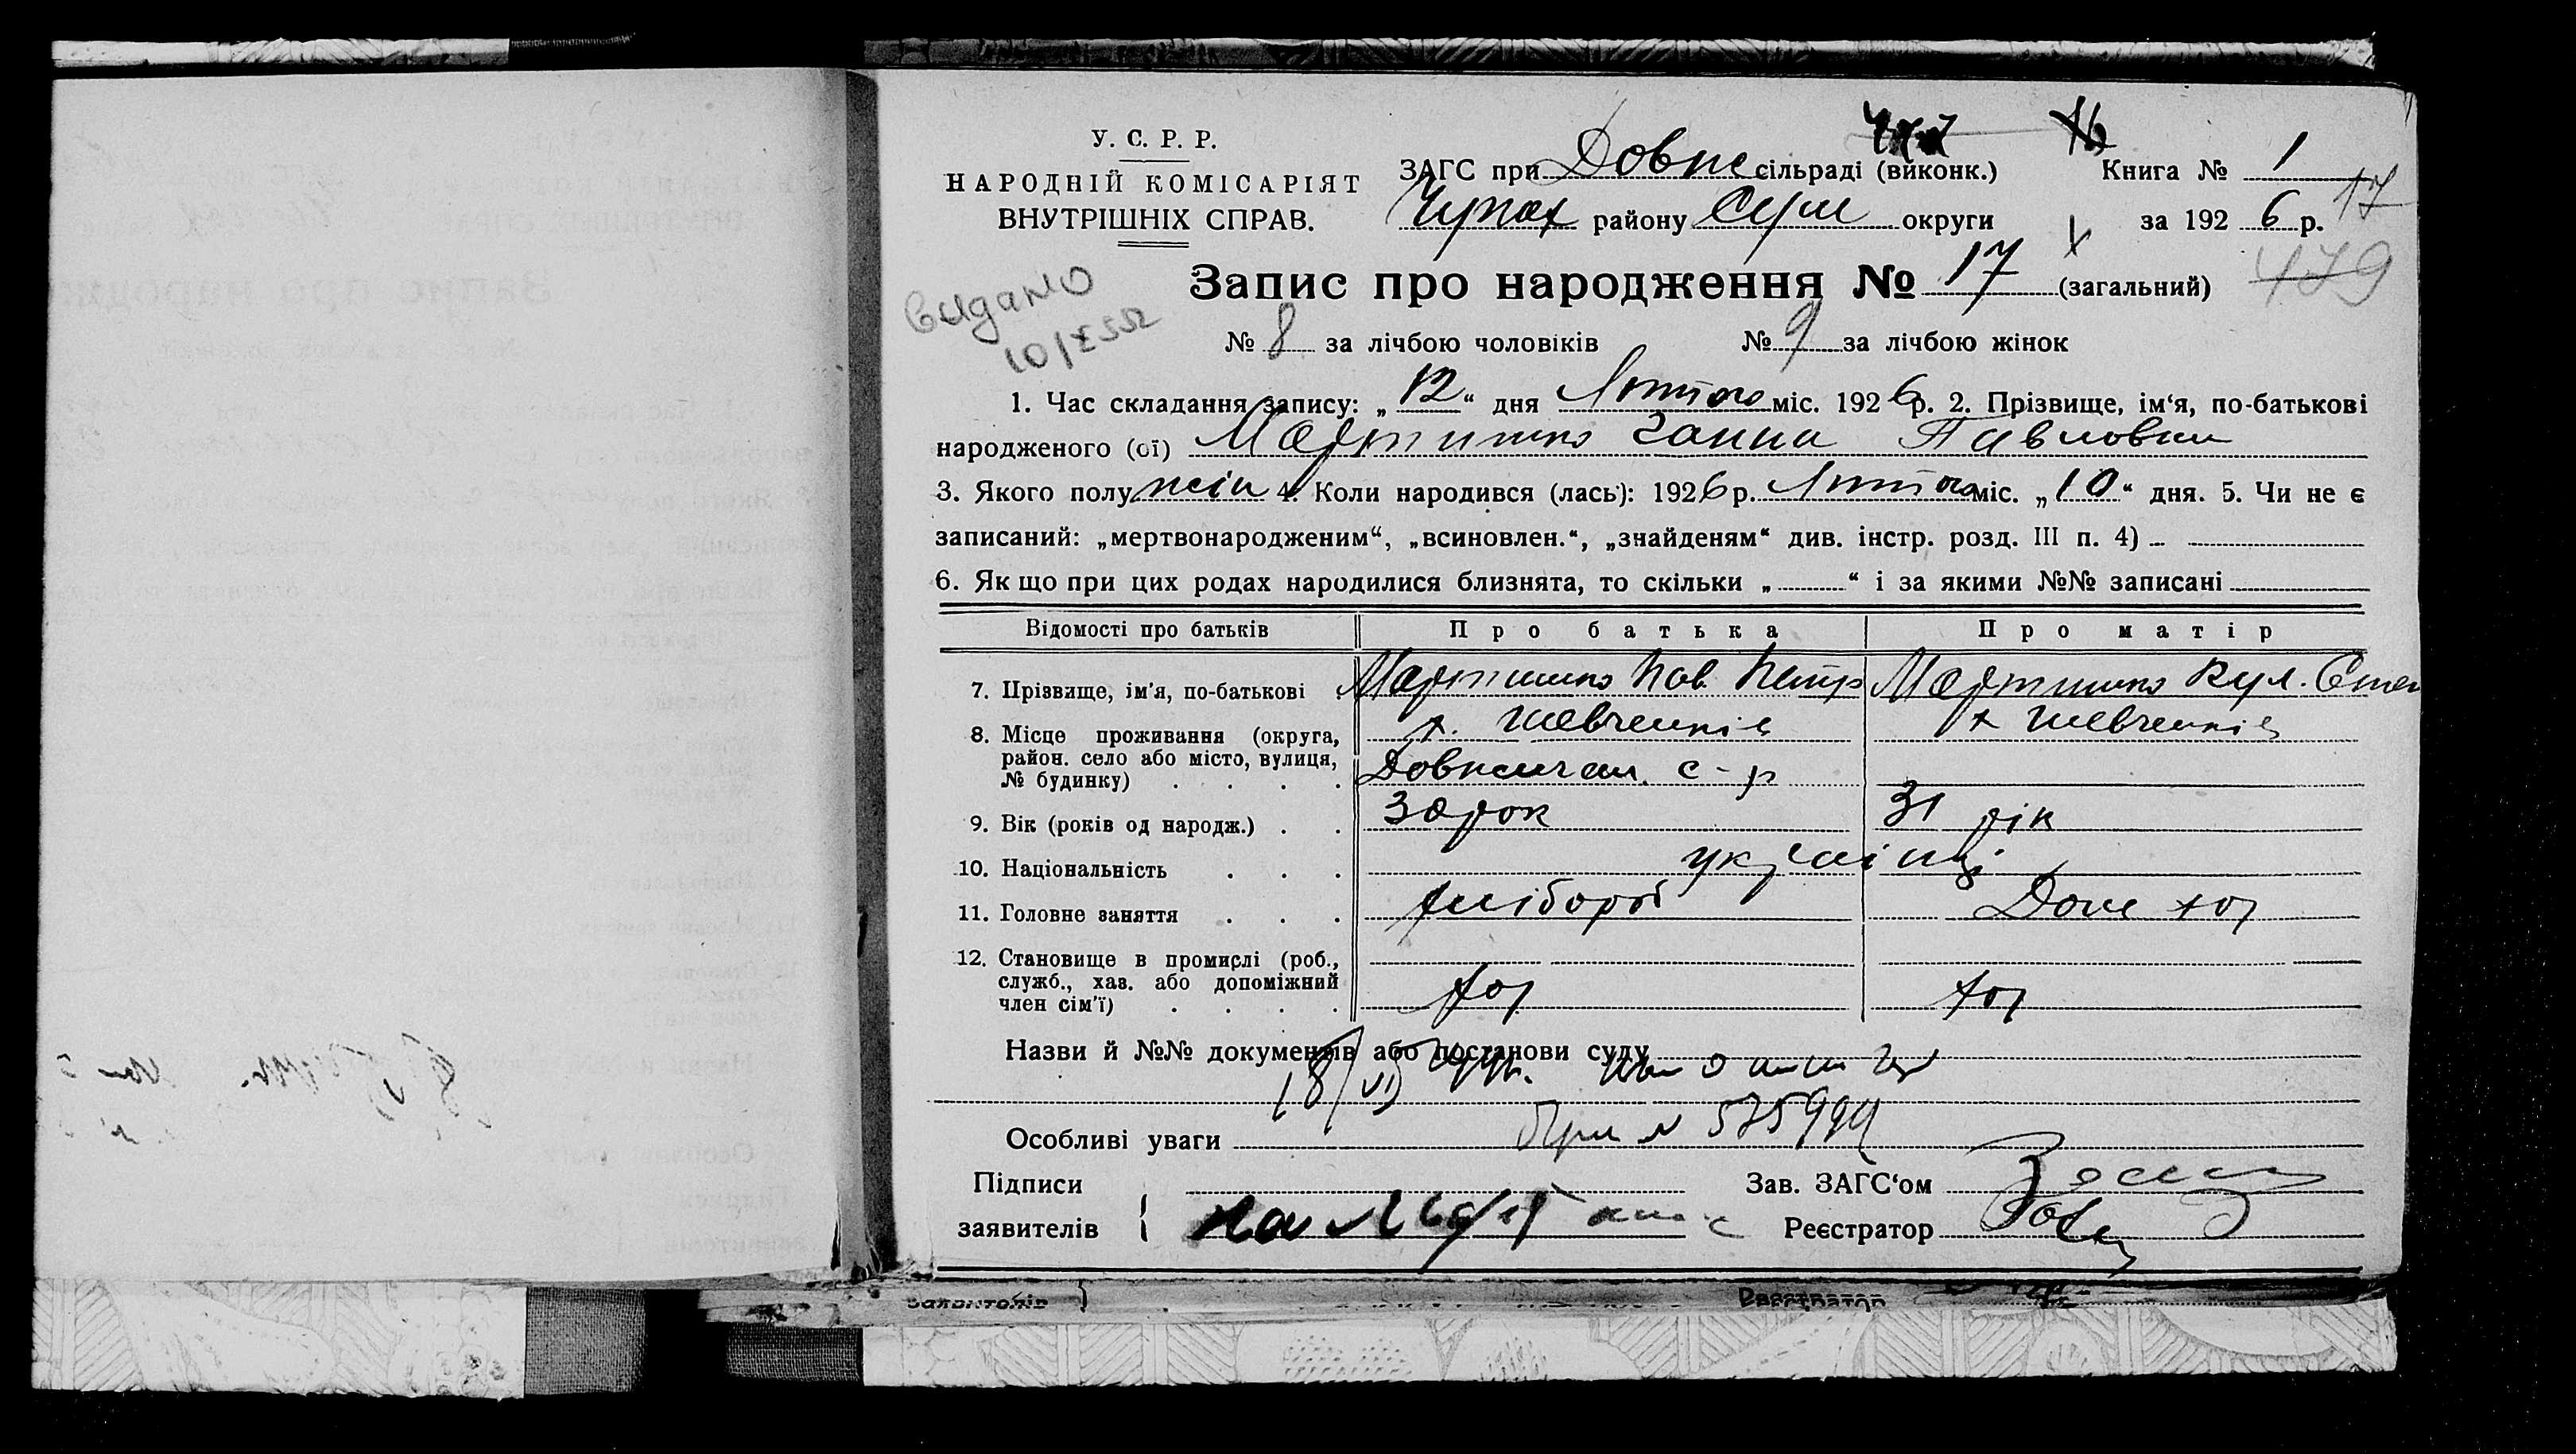 У. С. Р. Р.
НАРОДНІЙ КОМІСАРІЯТ
ВНУТРІШНІХ СПРАВ.
ЗАГС при Довже сільраді (виконк.)
Чупах району Сум округи
Книга № 1
за 192 6 р.
17
479
видано
Запис про народження № 17 (загальний)
№ 8 за лічбою чоловіків № 9 за лічбою жінок
1. Час складання запису: „ 12 “ дня Лютого міс. 192 6 р. 2. Прізвище, ім‘я, по-батькові
народженого (ої) Мартишко Ганна Павловна
3. Якого полу жін 4. Коли народився (лась): 192 6 р. Лютого міс. „ 10 “ дня. 5. Чи не є
записаний: „мертвонародженим“, „всиновлен.“, „знайденям“ див. інстр. розд. III п. 4)
6. Як що при цих родах народилися близнята, то скільки „ “ і за якими №№ записані
Відомості про батьків Про батька Про матір
7. Прізвище, ім'я, по-батькові Мартишко Пав. Петр Мартишко Кул. Степ
8. Місце проживання (округа, х. Шевченків х Шевченків
район. село або місто, вулиця,
№ будинку) с-р
9. Вік (років од народж.) 30 рок 31 рік
10. Національність українці
11. Головне заняття хлібороб Дом хоз
12. Становище в промислі (роб.,
служб., хаз. або допоміжний
член сім'ї) хоз хоз
Назви й №№ документів або постанови суду
18/VI
Особливі уваги № 575999
Підписи Зав. ЗАГС‘ом
заявителів Реєстратор
заявителів Реєстратор